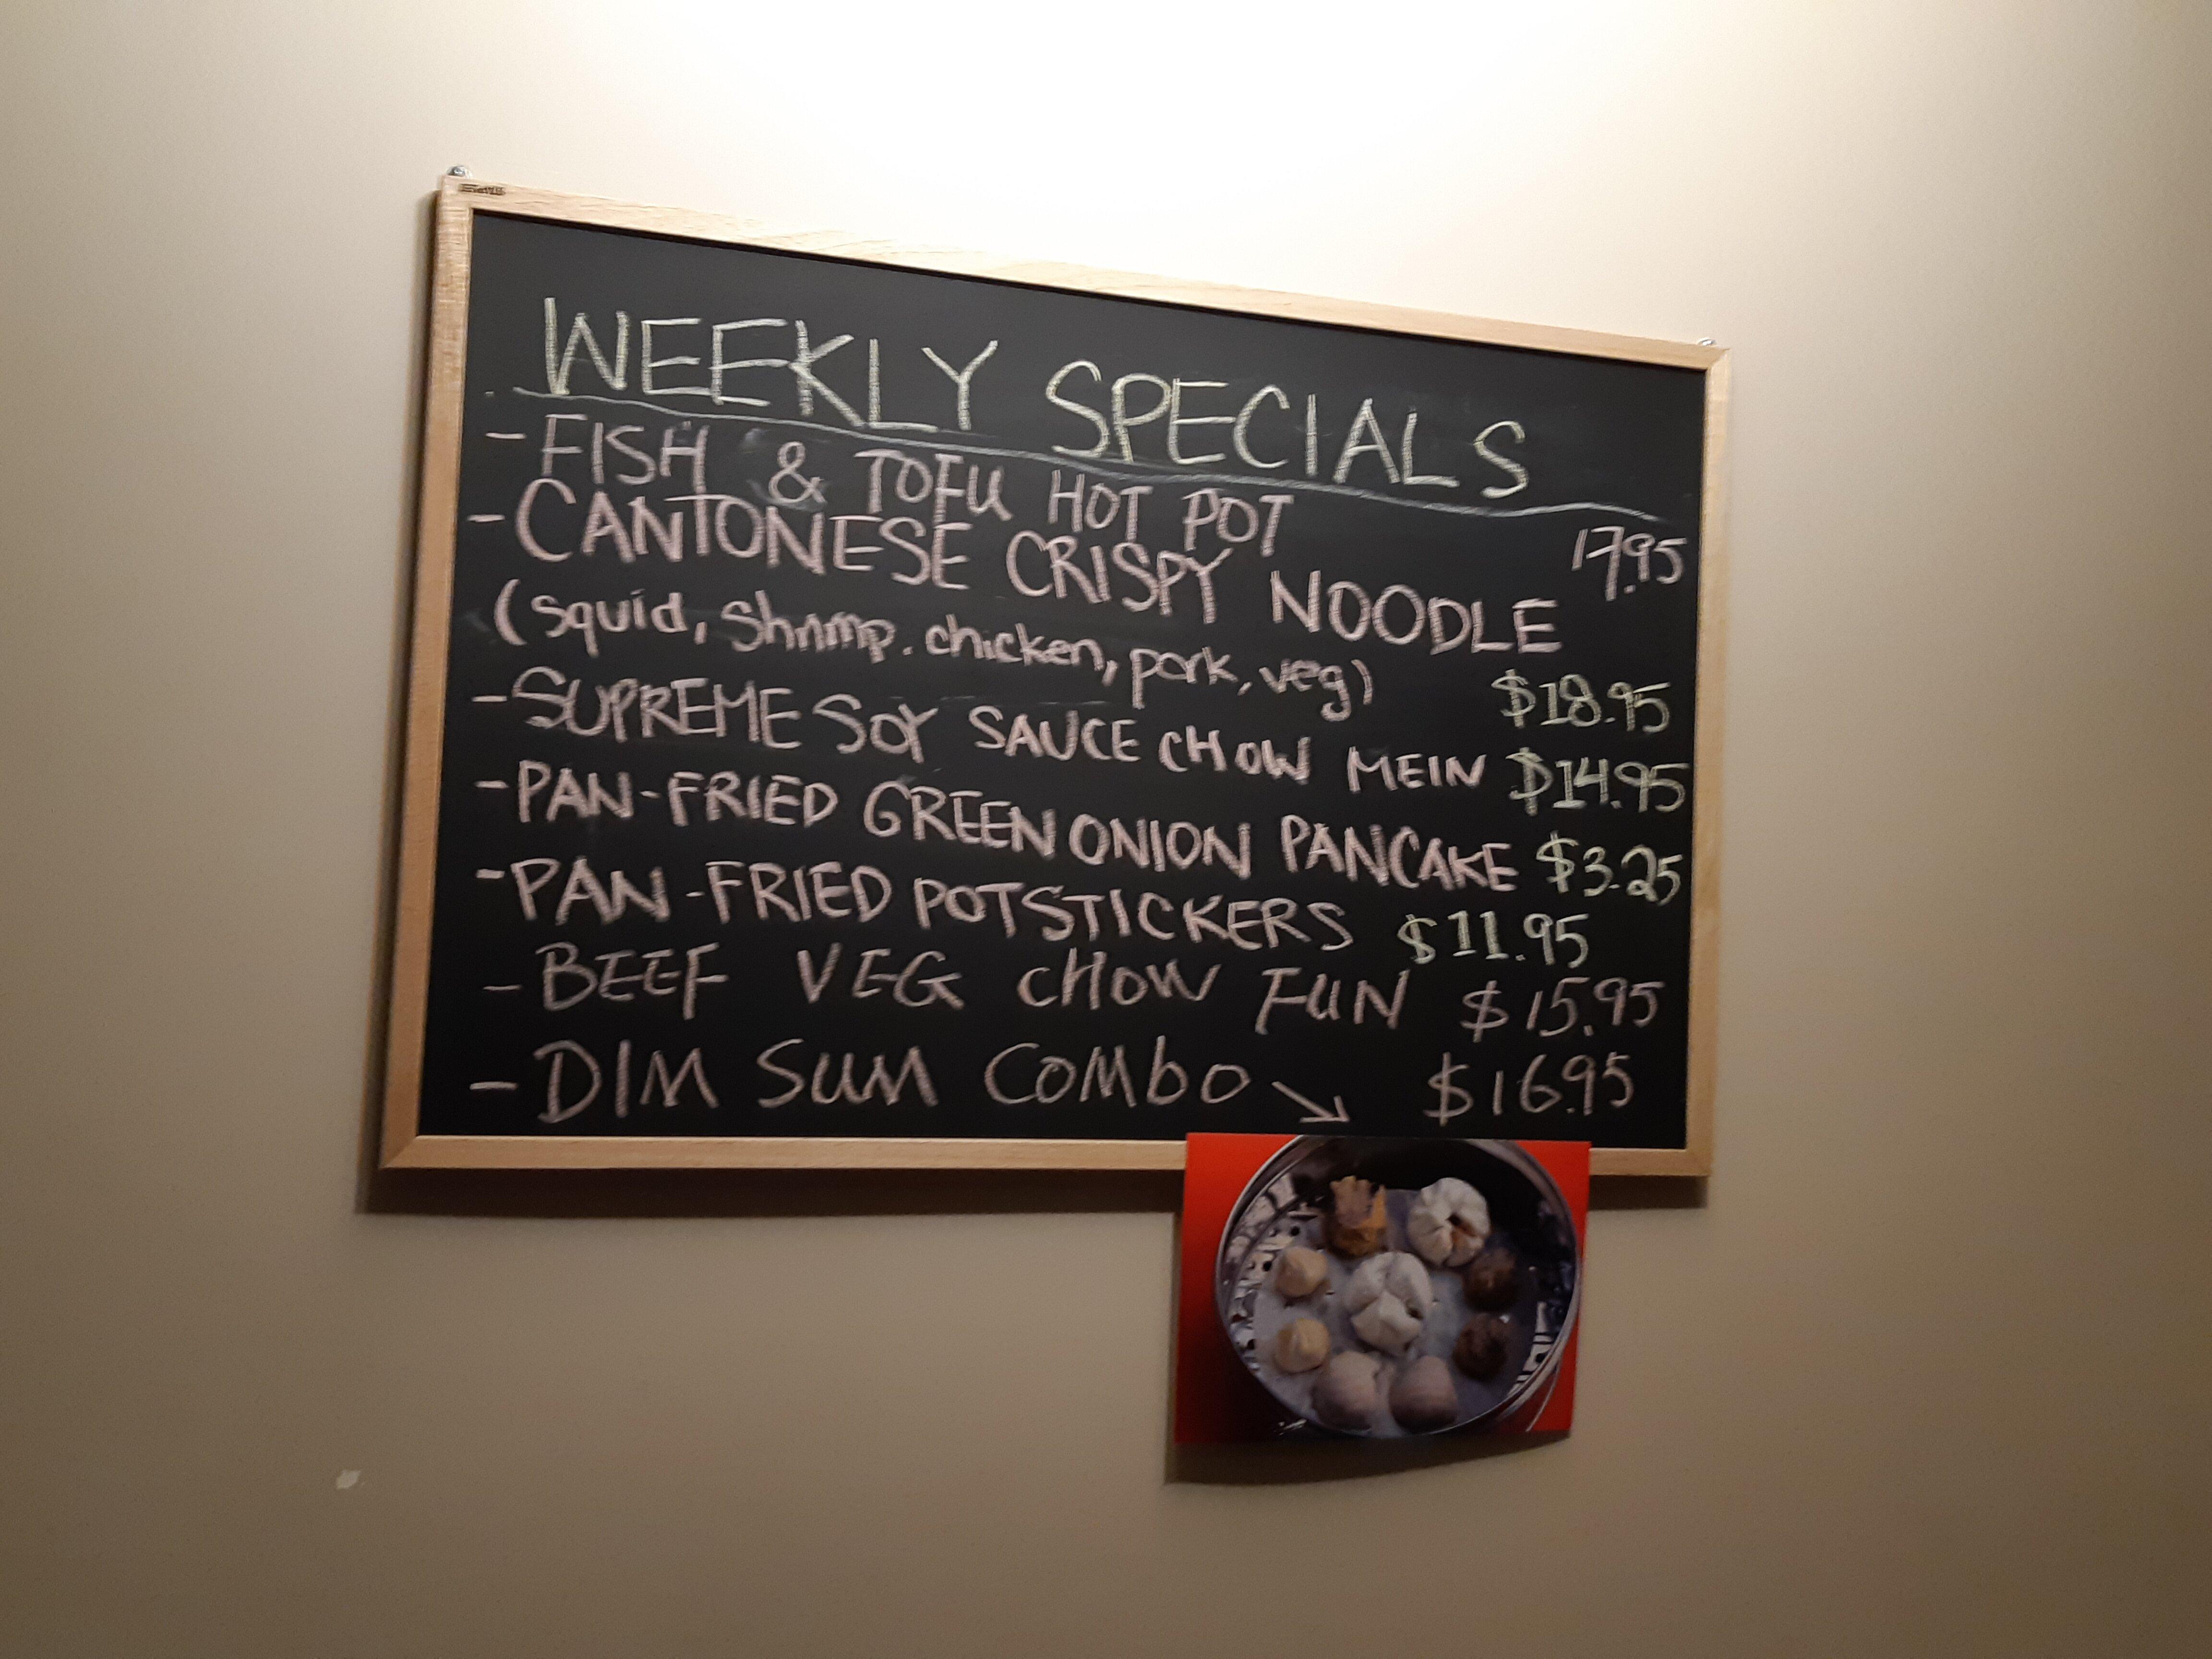 WEEKLY SPECIALS
- FISH & TOFU HOT POT 17.95
- CANTONESE CRISPY NOODLE
(squid, shrimp. chicken, pork, veg) $18.95
- SUPREME SOY SAUCE CHOW MEIN $14.95
- PAN-FRIED GREEN ONION PANCAKE $3.25
- PAN-FRIED POTSTICKERS $11.95
- BEEF VEG CHOW FUN $15.95
- DIM SUM COMBO → $16.95